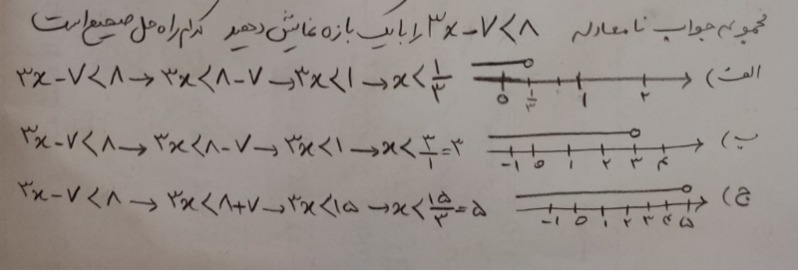 مجموعه جواب نامعادله ۳x-۷<۸ را با یک بازه نمایش دهید کدام راه حل صحیح است
الف) ۳x-۷<۸→۳x<۸-۷→۳x<۱→x<۱/۳
۰ ۱/۳ ۱ ۲
ب) ۳x-۷<۸→۳x<۸-۷→۳x<۱→x<۳/۱=۳
-۱ ۰ ۱ ۲ ۳ ۴
ج) ۳x-۷<۸→۳x<۸+۷→۳x<۱۵→x<۱۵/۳=۵
-۱ ۰ ۱ ۲ ۳ ۴ ۵